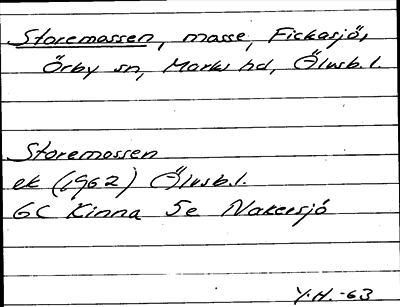 Storemossen, mosse, Fickasjö,
Örby sn, Marks hd, Älvsb. l.
Storemossen
ek (1962) Älvsb. l.
GC Kinna 5e Nakersjö
Y.H. -63